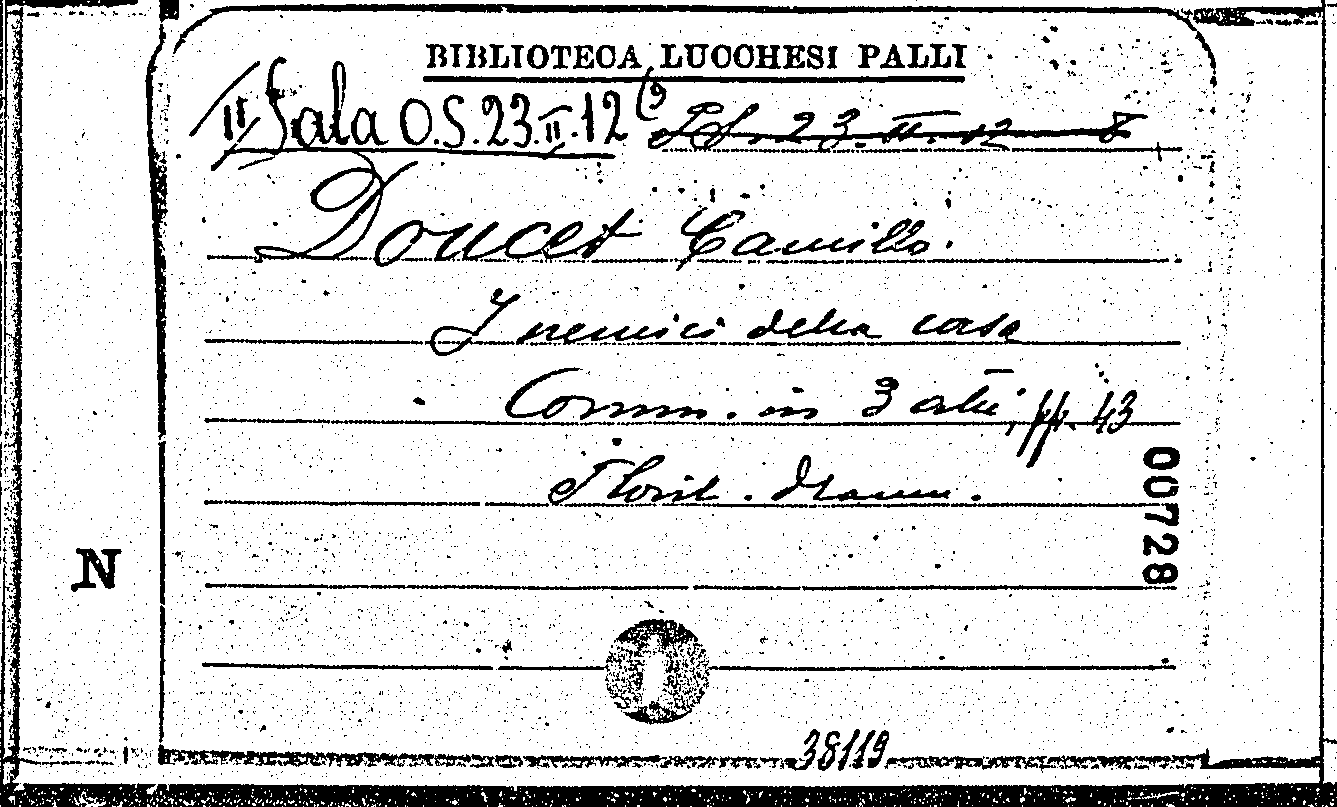 BIBLIOTECA LUCCHESI PALLI
II Sala O.S.23.II.12(9 23.II.12 8
Doucet Camillo.
I nemici della casa
Comm. in 3 atti, pp. 43
Floril. dramm.
00728
N
38119